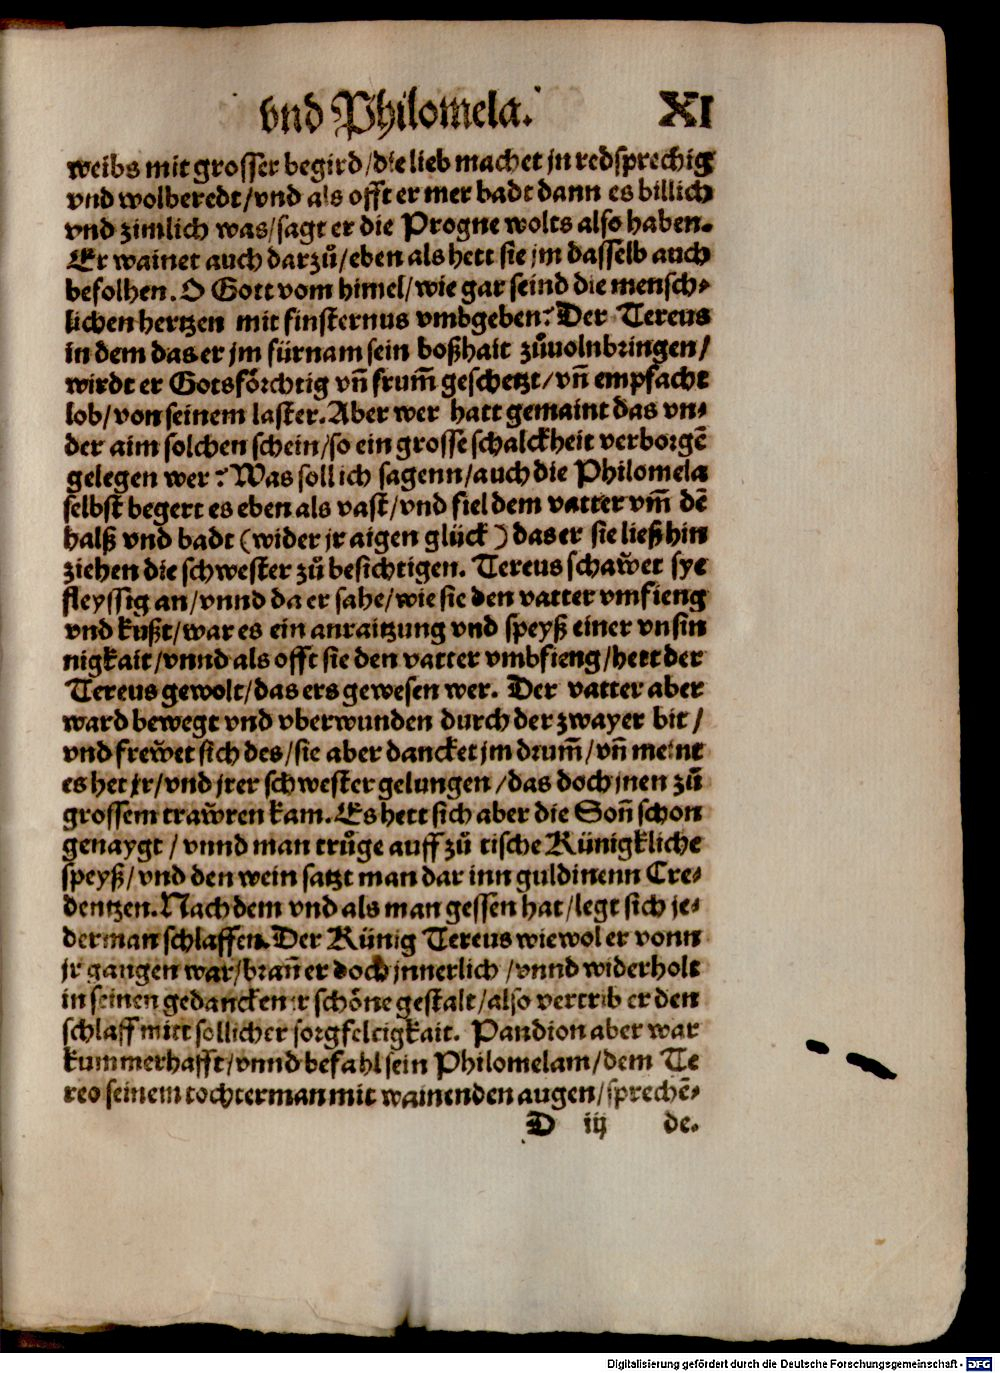 vnd Philomela. XI
weibs mit grosser begird/die lieb machet jn redsprechig
vnd wolberedt/vnd als offt er mer badt dann es billich
vnd zimlich was/sagt er die Progne wolts also haben.
Er wainet auch darzuͦ/eben als hett sie jm dasselb auch
befolhen. O Gott vom himel/wie gar seind die mensch⸗
lichen hertzen mit finsternus vmbgeben? Der Tereus
in dem das er jm fürnam sein boßhait zuͦuolnbringen/
wirdt er Gotsfoͤrchtig vñ frum̃ geschetzt/vñ empfacht
lob/von seinem laster. Aber wer hatt gemaint das vn⸗
der aim solchen schein/so ein grosse schalckheit verborgẽ
gelegen wer? Was soll ich sagenn/auch die Philomela
selbst begert es eben als vast/vnd fiel dem vatter vm̃ dẽ
halß vnd badt (wider jr aigen glück) das er sie ließ hin
ziehen die schwester zuͦ besichtigen. Tereus schaw̆et sye
fleyssig an/vnnd da er sahe/wie sie den vatter vmfieng
vnd kußt/war es ein anraitzung vnd speyß einer vnsin
nigkait/vnnd als offt sie den vatter vmbfieng/hett der
Tereus gewolt/das ers gewesen wer. Der vatter aber
ward bewegt vnd vberwunden durch der zwayer bit/
vnd frew̆et sich des/sie aber dancket jm drum̃/vñ meint
es het jr/vnd jrer schwester gelungen/das doch jnen zuͦ
grossem traw̆ren kam. Es hett sich aber die Soñ schon
genaygt/vnnd man truͦge auff zuͦ tische Künigkliche
speyß/vnd den wein satzt man dar inn guldinenn Cre⸗
dentzen. Nach dem vnd als man gessen hat/legt sich je⸗
derman schlaffen. Der Künig Tereus wiewol er vonn
jr gangen war/brañ er doch jnnerlich/vnnd widerholt
in seinen gedancken jr schoͤne gestalt/also vertrib er den
schlaff mitt sollicher sorgfeltigkait. Pandion aber war
kummerhafft/vnnd befahl sein Philomelam/dem Te
reo seinem tochterman mit wainenden augen/sprechẽ⸗
D iij de.
Digitalisierung gefördert durch die Deutsche Forschungsgemeinschaft - DFG